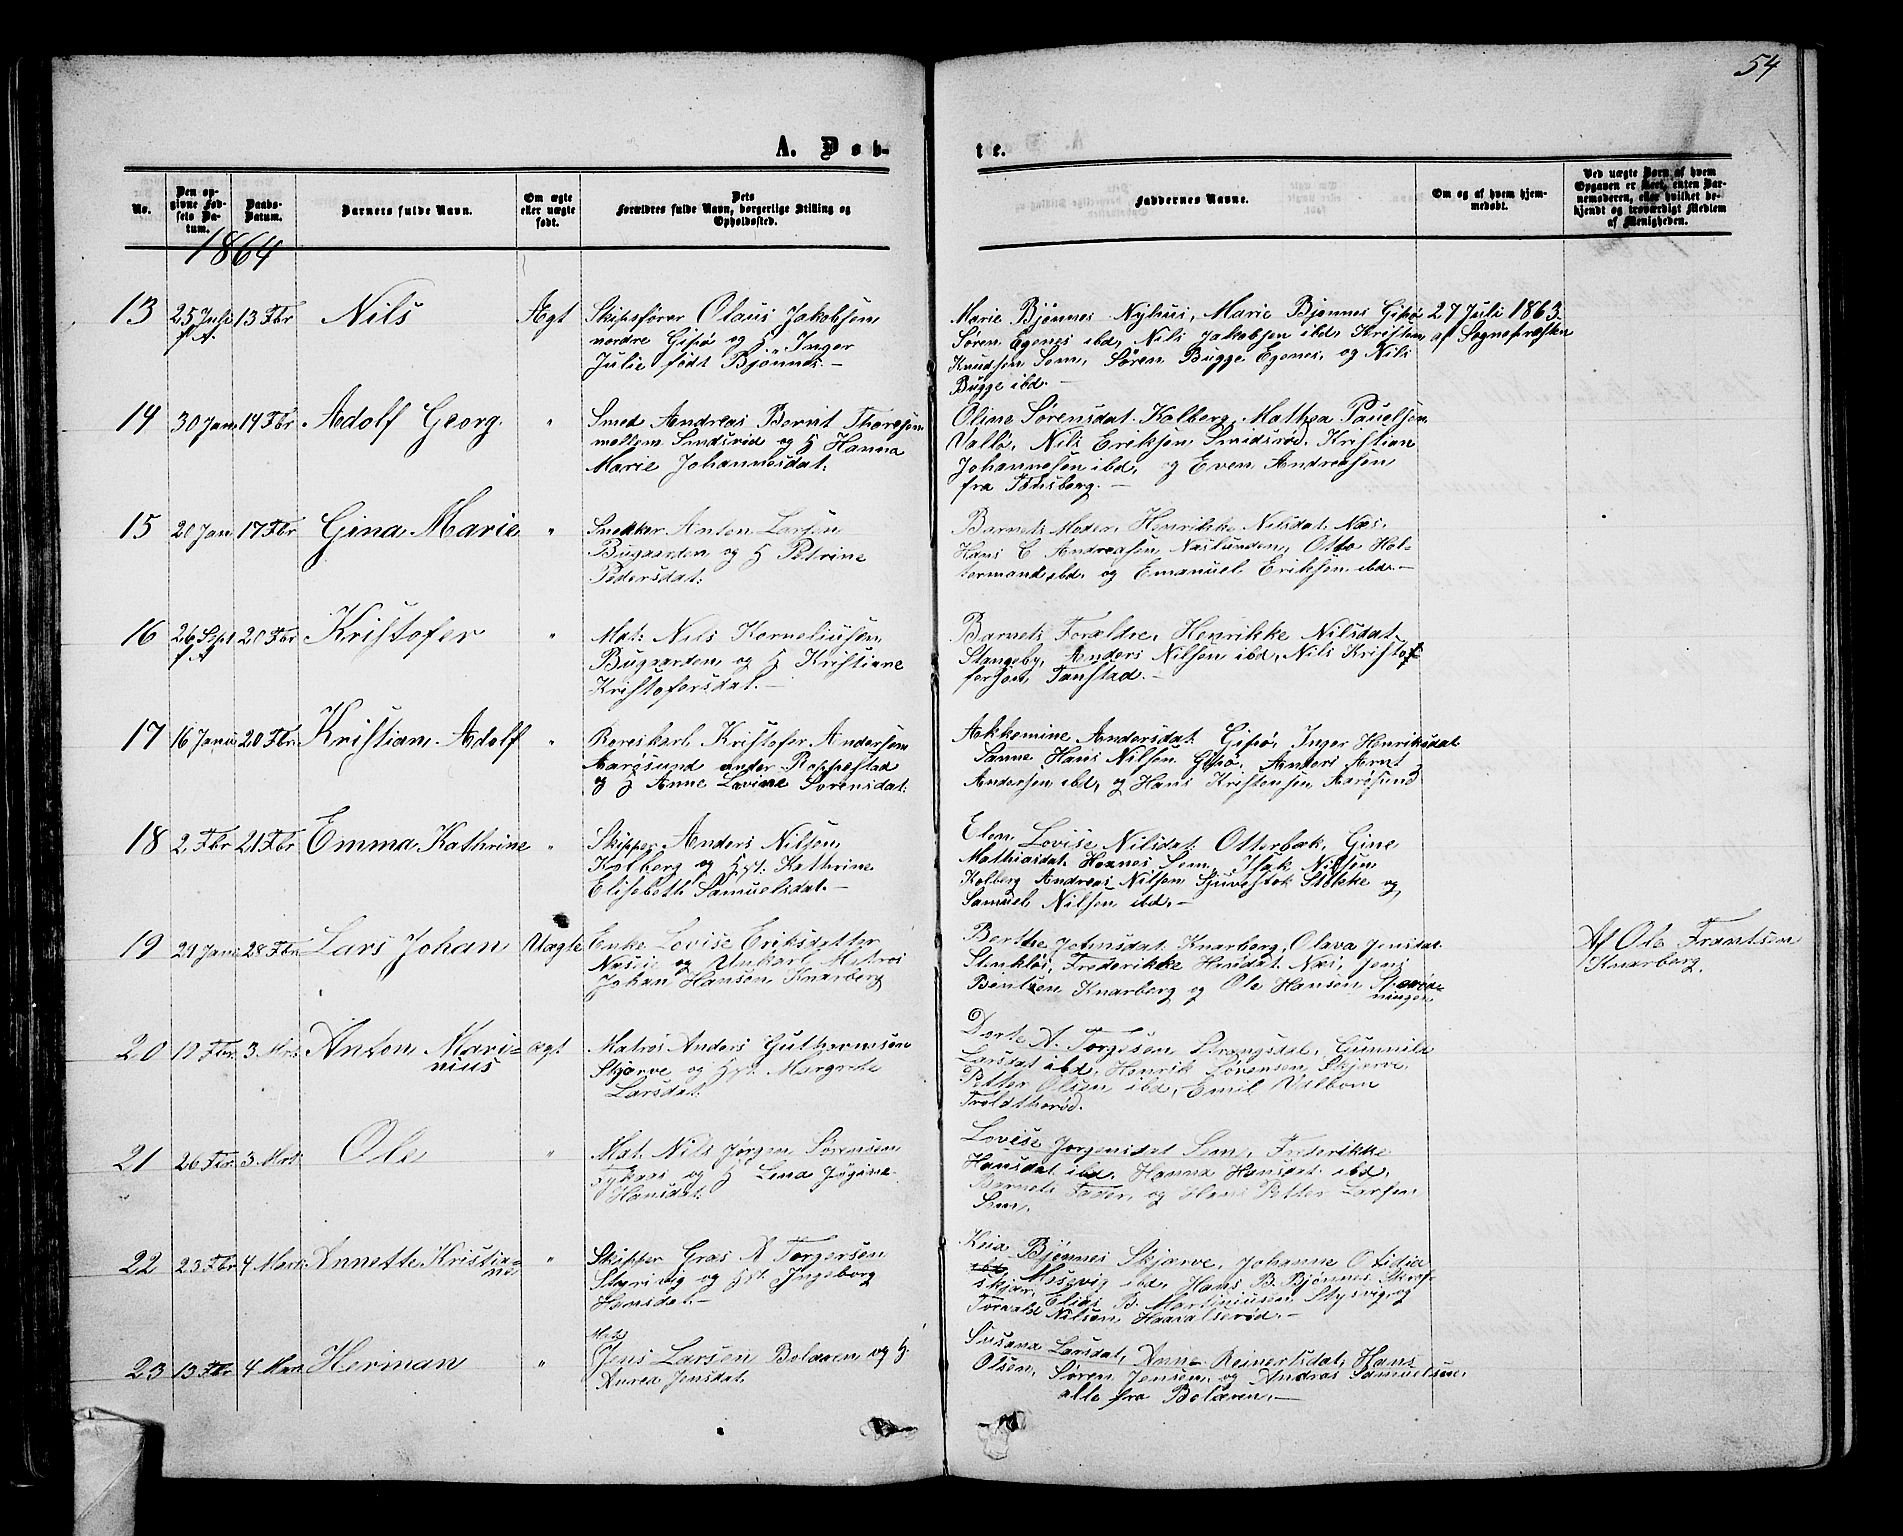 54
A. Døb-
te.
No.
Den op-
givne Fød-
sels Da-
tum.
Daabs-
Datum.
Barnets fulde Navn.
Om ægte
eller uægte
født.
Dets
Forældres fulde Navn, borgerlige Stilling og
Opholdssted.
Faddernes Navne.
Om og af hvem hjem-
medøbt.
Ved uægte Børn af hvem
Opgaven er skeet, enten Bar-
nemoderen, eller hvilket be-
kjendt og troværdigt Medlem
af Menigheden.
1864
13 25 Juli 13 Fbr Nils Ægt Skipsfører Olaus Jakobsen
f. A.
nordre Gipø og H Inger
Julie født Bjønnes.-
Marie Bjønnes Nyhus, Marie Bjønnes Gipø
Søren Egenes ibd, Nils Jakobsen ibd, Kristen
Knudsen Sem, Søren Bugge Egenes, og Nils
Bugge ibd.-
27 Juli 1863
af Sognepræsten
14 30 Jan 14 Fbr. Adolf Georg. " Smed Andreas Bernt Thoresen
mellem Smidsrød og H Hanna
Marie Johannesdat.
Oline Sørensdat. Kolberg, Mathea Paulsen
Vallø, Nils Eriksen Smidsrød, Kristian
Johannesen ibd, og Even Andreasen
fra Tønsberg.-
15 20 Jan 17 Fbr Gina Marie " Snedker Anton Larsen
Bugaarden og H Petrine
Pedersdat.
Barnets Moder, Henrikke Nilsdat. Næs,
Hans E Andreasen Næslunden, Otto Hol-
termand ibd. og Emanuel Eriksen ibd.-
16 26 Sept 20 Fbr Kristofer " Mat. Nils Korneliusen
f. A
Bugaarden og H Kristiane
Kristofersdat.-
Barnets Forældre, Henrikke Nilsdat.
Stangeby, Anders Nilsen ibd, Nils Kristof-
fersen Tanstad.-
17 16 Janu 20 Fbr. Kristian Adolf " Roreskarl Kristofer Andersen
Aarøsund under Roppestad
og H Anne Lovine Sørensdat.
Akkemine Andersdat. Gipø, Inger Henriksdat
Sanne, Hans Nilsen Gipø, Anders Arnt
Andersen ibd, og Hans Kristensen Aarøsund
18 2 Fbr 21 Fbr Emma Kathrine " Skipper Anders Nilsen
Kolberg og Hst. Kathrine
Elisebeth Samuelsdat.-
Elen Lovise Nilsdat Otterbæk, Gine
Mathiasdat. Hexnes Sem, Isak Nilsen
Kolberg Andreas Nilsen Stokke og
Samuel Nilsen ibd.-
19 29 Janu 28 Fbr. Lars Johan Uægte Enke Lovise Eriksdatter
Næsie og Unkarl Matros
Johan Hansen Knarberg
Berthe Jensdat. Knarberg, Olava Jensdat.
Stenkløs, Frederikke Hansdat. Næs, Jens
Bentsen Knarberg og Ole Hansen
Af Ole Frantsen
Knarberg.
20 12 Fbr. 3 Mrs Anton Mari-
nius
ægt Matros Anders Guthormsen
Skjærve og Hst. Margrete
Larsdat.
Dorte A. Torgesen Strengsdal, Gunnild
Larsdat ibd, Henrik Sørensen Skjærve,
Petter Olsen ibd, Emil Valbom
Troldthørød.
21 26 Fbr. 3 Mrs Ole " Mat. Nils Jørgen Sørensen
og H Lina Jøgine
Hansdat.
Lovise Jørgensdat Sem, Frederikke
Hansdat ibd. Hanna Hansdat ibd,
Barnets Fader, og Hans Petter Larsen
Sem.
22 23 Fbr 4 Mars Annette Kristia-
ne
" Skipper Gras A Torgersen
Størvig og Hst. Ingeborg
Hansdat.-
Kria Bjønnes Skjærve, Johanne Otidia
Mesevig ibd, Hans B. Bjønnes
skjær, Elias B. Martiniusen og
Torvald Nilsen Haavalserød.-
23 13 Fbr 4 Mars Herman " Jens Larsen Bolæren og H
Mat.
Aurea Jensdat.
Susana Larsdat, Anne Reinertsdat, Hans
Olsen, Søren Jensen og Andras Samuelsen,
alle fra Bolæren.-